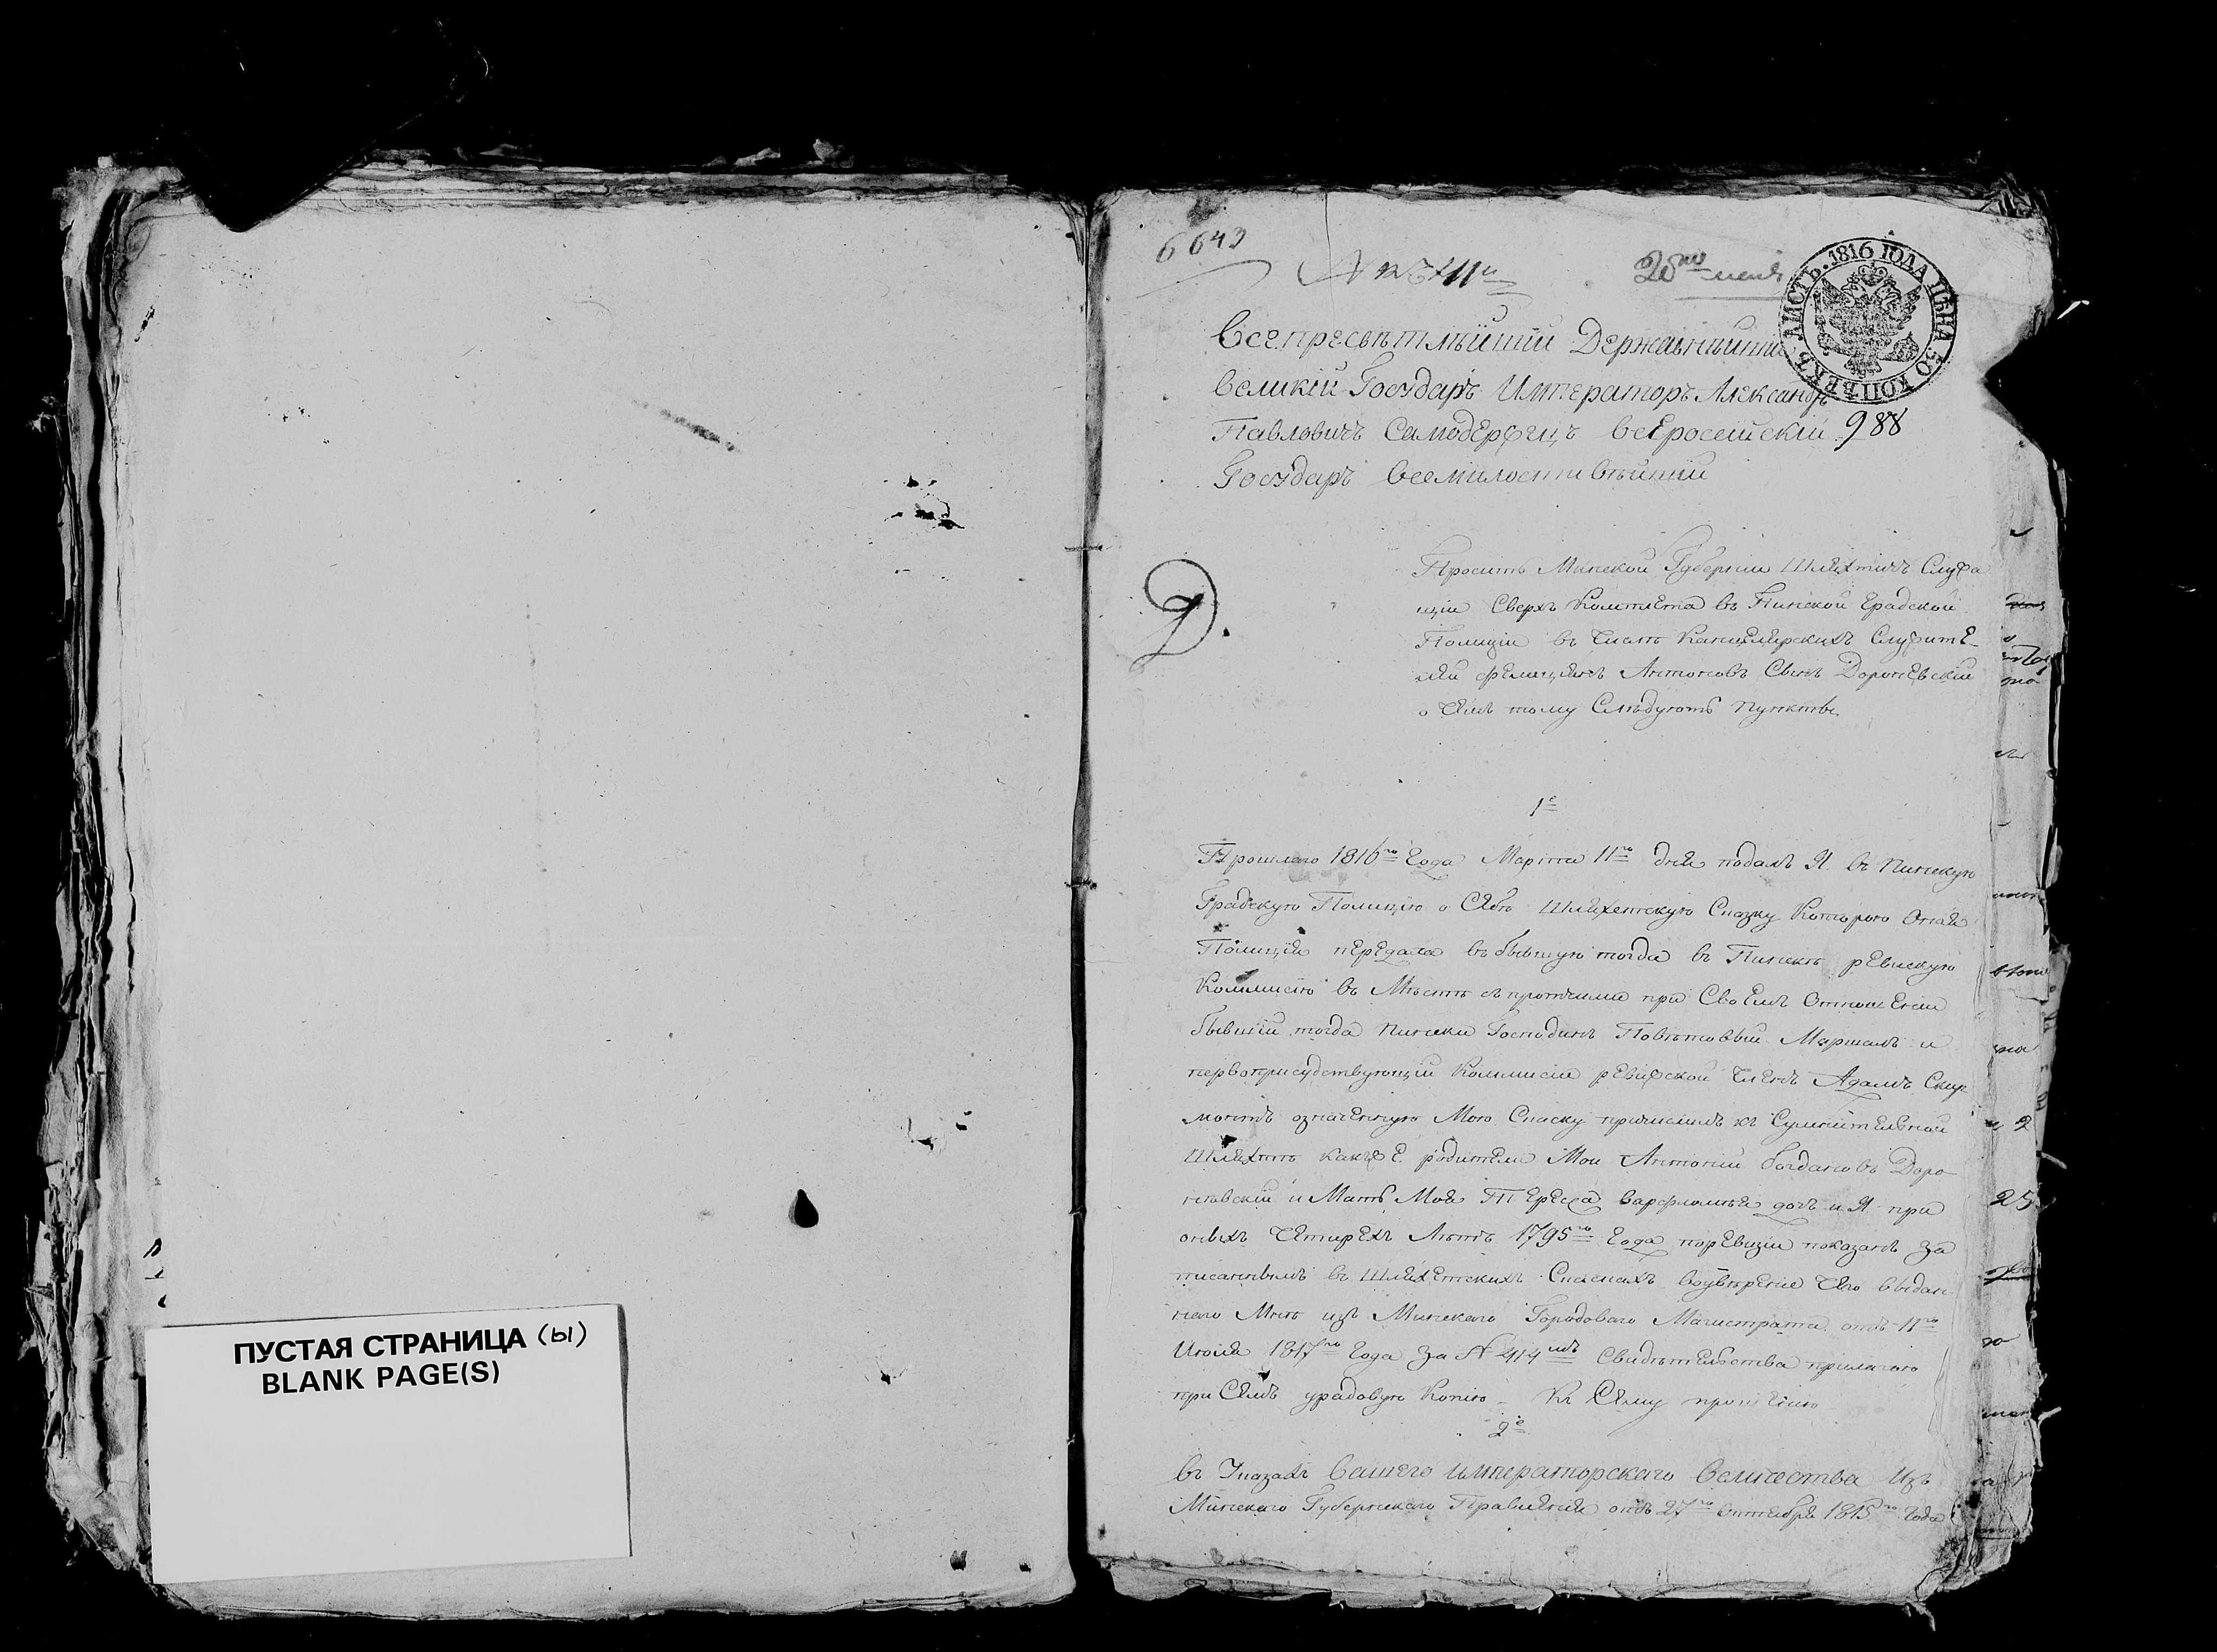 ПУСТАЯ СТРАНИЦА (ы)
BLANK PAGE(S)
6643
ЛИСТЪ. 1816 ГОДА ЦѢНА 50 КОПѢЕКЪ
Всепресвѣтлѣйшій Державнѣйшій
Великій Государь Императоръ Александръ
Павловичъ Самодержецъ всеросейскій 988
Государь Всемилостивѣйшій
Проситъ Минской Губерніи Шляхтичъ Служа
щій Сверхъ Комплета въ Пинской Градской
Полиціи въ Числѣ Канцелярскихъ Служите-
лей Фелиціянъ Антоновъ Сынъ Дороневскій
о Чемъ тому Слѣдуютъ пункты
1е
Прошлаго 1816го Года Марта 11го дня подалъ Я въ Пинскую
Градскую Полицію о Себѣ Шляхетскую Сказку Которую Оная
Полиція передала въ бывшую тогда въ Пинскѣ ревискую
Коммисію въ Мѣстѣ съ протчими при Своемъ Отношеніи
бывшій тогда Пинскій Господинъ Повѣтовый Маршалъ и
первоприсудствующій Коммисіи ревижской Членъ Адамъ Скир
монтъ означенную Мою Скаску причислилъ къ Сумнительной
Шляхтѣ какъ же родители Мои Антоній Богдановъ Доро
невскій и Мать Моя Тереса Варфломѣя дочъ и Я при
оныхъ Четирехъ Лѣтъ 1795го Года поревизіи показанъ за
писаннымъ въ Шляхетскихъ Скаскахъ воувѣреніе Чего выдан
наго Мнѣ изъ Минскаго Городоваго Магистрата отъ 11го
Июля 1817го Года За № 414мъ Свидѣтельства прилагаю
при Семъ урадовую Копію К Сему прошенію
2е
въ Указахъ Вашего Императорскаго Величества Изъ
Минскаго Губернскаго Правленія отъ 27го Октября 1815го Года